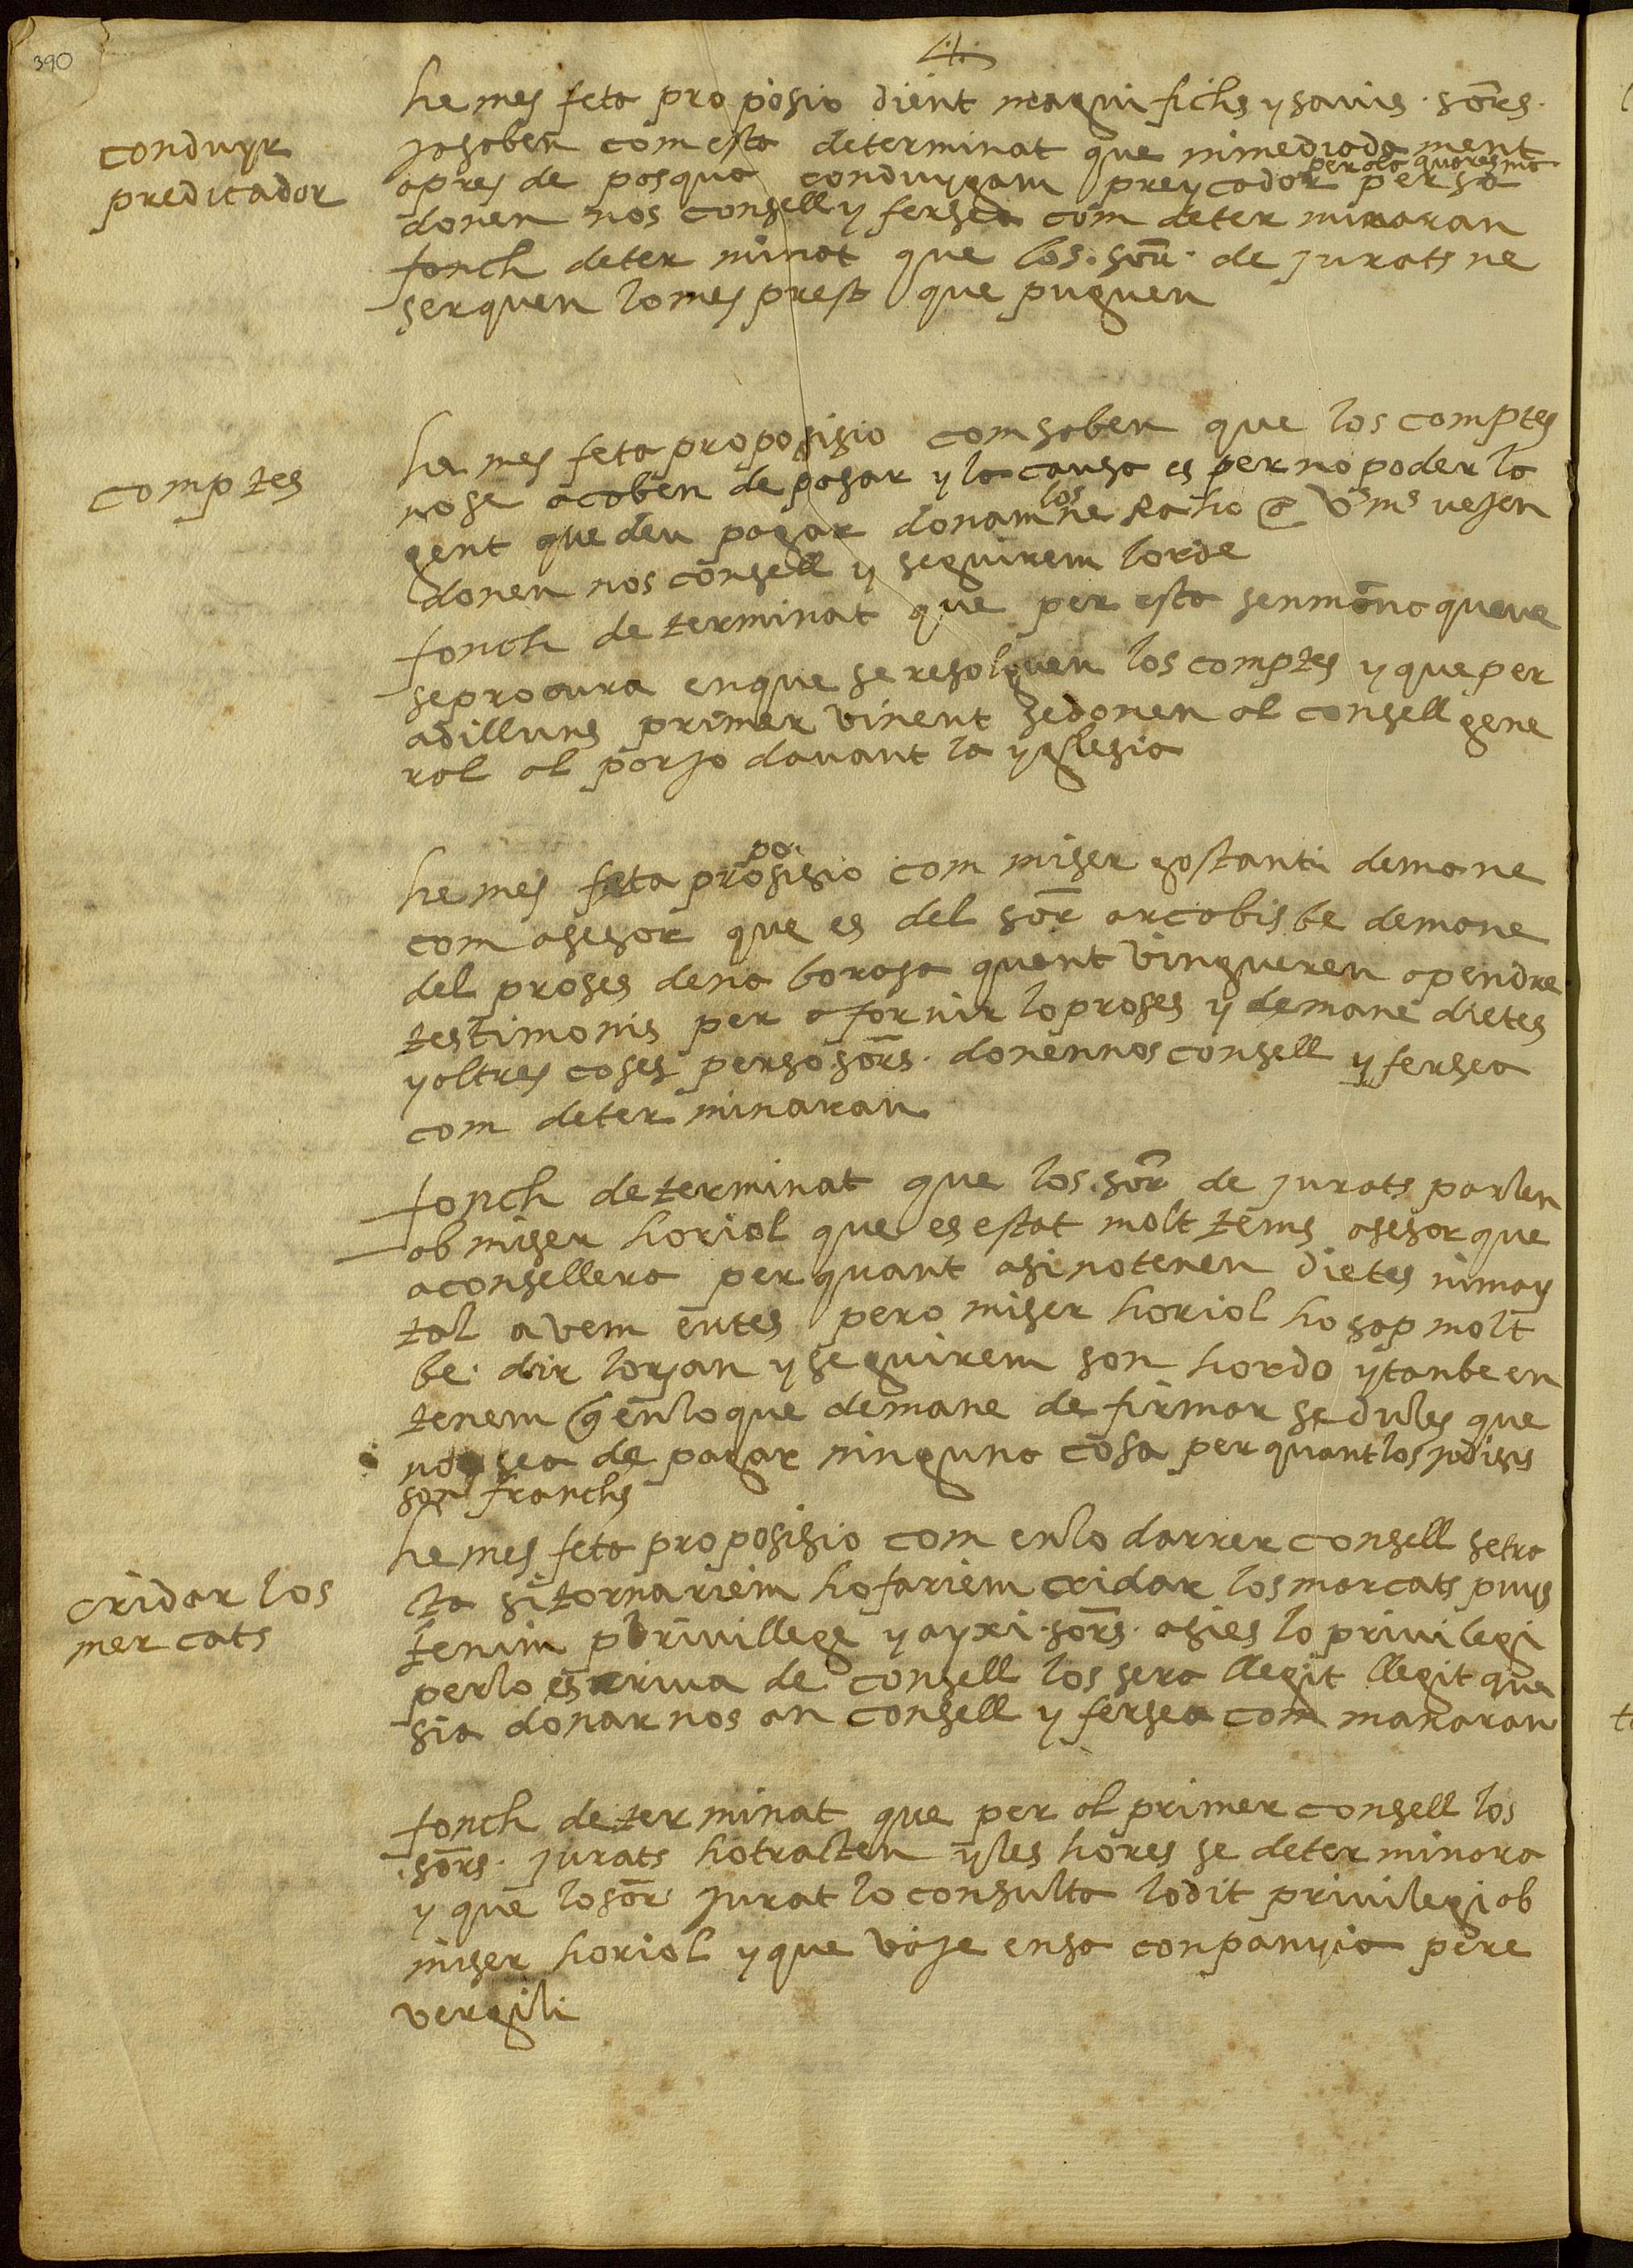 390
.4.
he mes feta proposio dient magnifichs y savis sors.
conduyr
predicador
ja saben com esta determinat que nimediadament
apres de pasqua conduygam preycador per a la quaresma perso
donen nos consell y fersea com determinaran
fonch determinat que los sors. de jurats ne
serquen lo mes prest que puguen
comptes
he mes feta proposisio com saben que los comptes
no se acaben de pasar y la causa es per no poder la
gent que deu pagar donam los ne raho vs ms vejen
donen nos consell y seguirem lorde
fonch determinat que per esta senmana que ve
se procura en que se resolguen los comptes y que per
a dilluns primer vinent se donen al consell gene
ral al porjo davant la yglesia
he mes feta proposisio com miser gostanti demane
com asesor que es del sor arcobisbe demane
del proses de na borasa quant vingueren a pendre
testimonis per a fornir lo proses y demane dietes
y altres coses perso sors. donen nos consell y fersea
com determinaran
fonch determinat que los sors de jurats parlen
ab miser horiol que es estat molt tems asesor que
aconsellera per quant asi no tenen dietes ni may
tal avem entes pero miser horiol ho sap molt
be dir lorjan y seguirem son hordo y tanbe en
tenem q en lo que demane de firmar sedules que
no sea de pagar ninguna cosa per quant los jodisis
son franchs
cridar los
mercats
he mes feta proposisio com en lo darrer consell se tra
ta si tornariem ho fariem cridar los marcats puys
tenim privillege y ayxi sors. asi es lo privilegi
per lo escriva de consell los sera llegit llegit que
sia donar nos an consell y fersea com manaran
fonch determinat que per al primer consell los
sors. jurats ho tracten y les hores se determinara
y que lo sor jurat lo consulta lo dit privilegi ab
miser horiol y que vaje en sa conpanyia pere
vergili